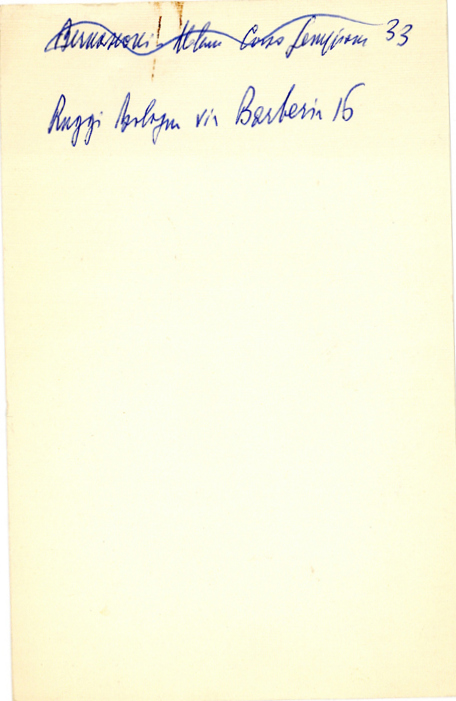 Bernasconi Milano Corso Sempione 33
Ruggi Bologna via Barberia 16